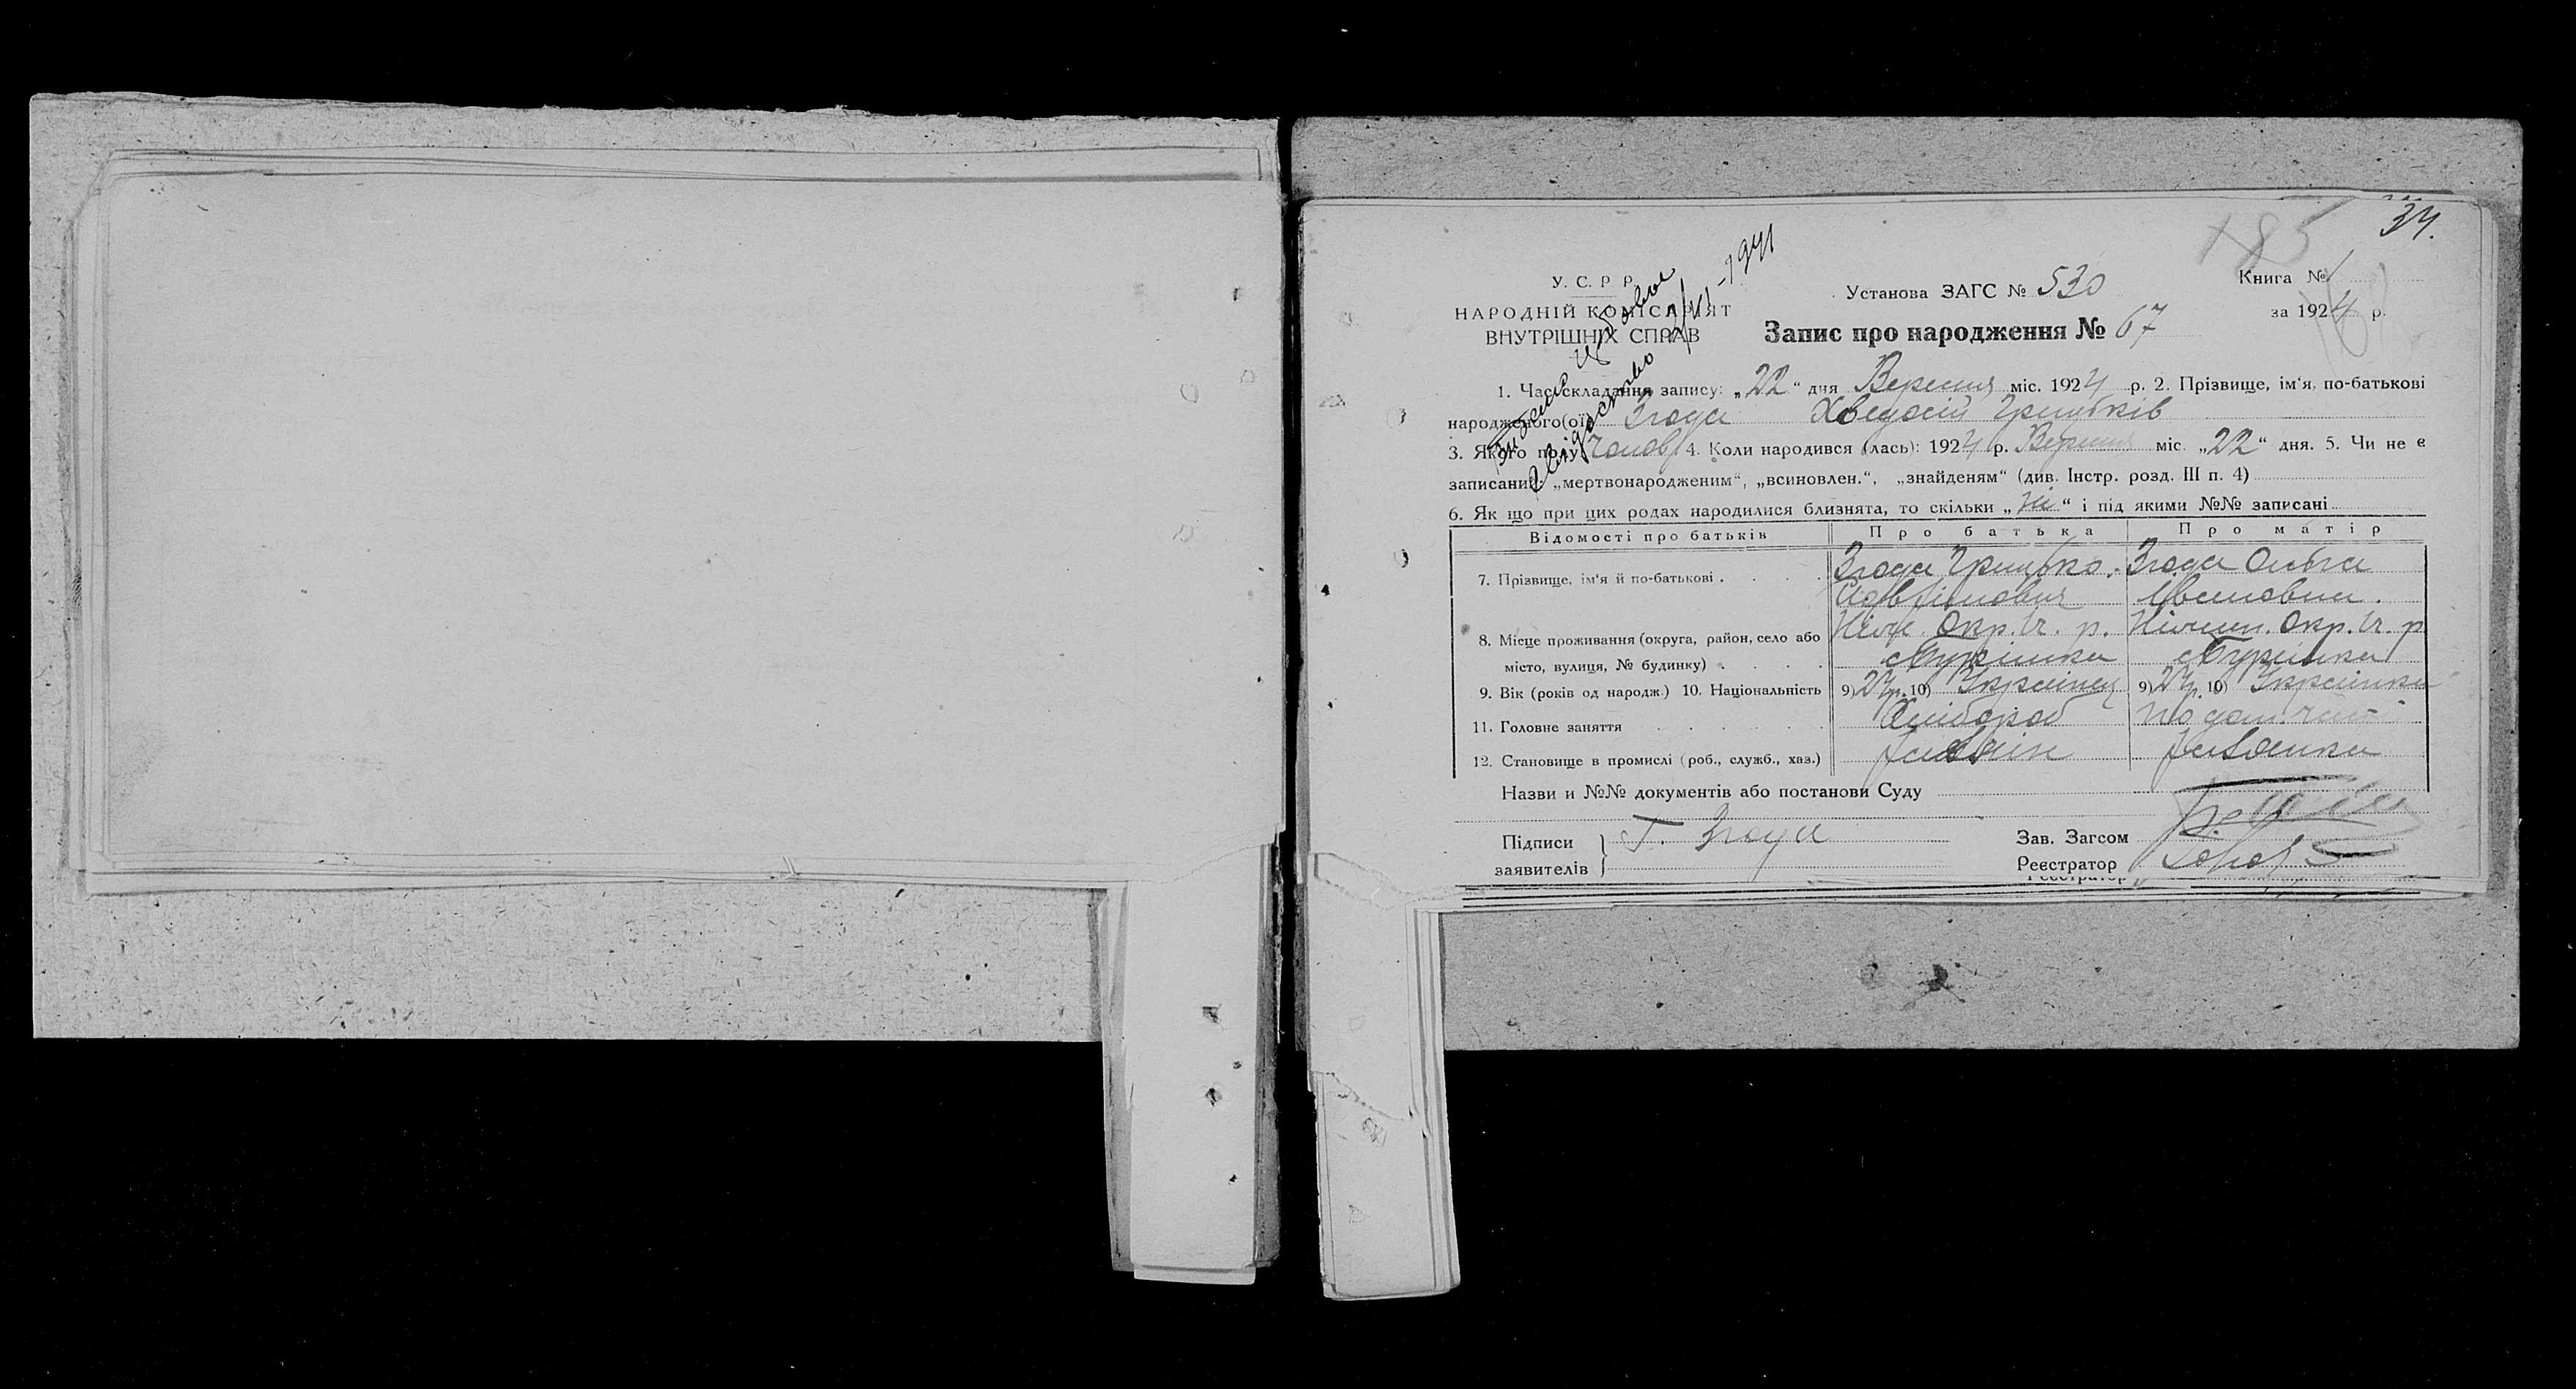 34.
185
У. С. Р. Р.
НАРОДНІЙ КОМІСАРІЯТ
ВНУТРІШНІХ СПРАВ
Установа ЗАГС № 530
Книга № 1
за 1924 р.
Запис про народження № 67
1. Час складання запису: „22“ дня Вересня міс. 1924 р. 2. Прізвище, ім‘я, по-батькові
народженого(ої) Згода Хведосій Грицьків
3. Якого полу Чолов 4. Коли народився (лась): 1924 р. Вересня міс. „22“ дня. 5. Чи не є
записаний: „мертвонародженим“, „всиновлен.“, „знайденям“ (див. Інстр. розд. III п. 4)
6. Як що при цих родах народилися близнята, то скільки „Ні“ і під якими №№ записані
Відомості про батьків Про батька Про матір
7. Прізвище, ім‘я й по-батькові . . . . Згода Грицько. Згода Ольга
Івановна.
8. Місце проживання (округа, район, село або Ніж. Окр. Іч. р. Ніжин. Окр. Іч. р
місто, вулиця, № будинку) . . . .
9. Вік (років од народж.) 10. Національність 9) 10) Українец 9) 10) Українка
11. Головне заняття . . . . . Хлібороб по дом. част
12. Становище в промислі (роб., служб., хаз.) Хазяїн Хазяйка
Назви и №№ документів або постанови Суду
Підписи Г. Згода
заявителів
Зав. Загсом
Реєстратор
Реєстратор
свідоцтво
-1941